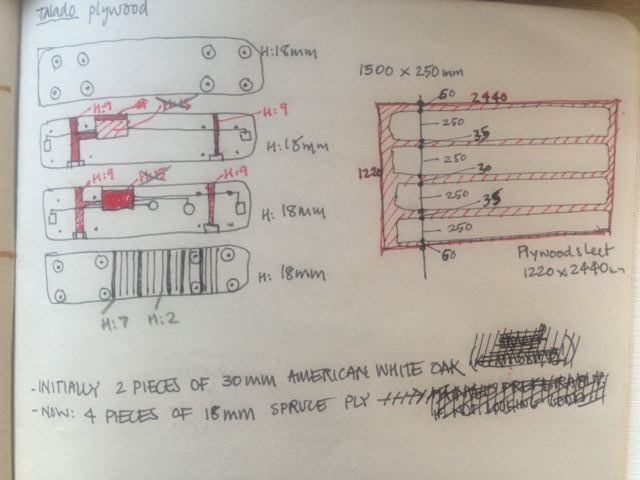 Talado plywood
H:18mm
H:9
H:9
H:18mm
H:9
H:9
H: 18mm
H: 18mm
H:7 H:2
1500 x 250 mm
60
2440
250
35
250
1220
30
250
35
250
60
Plywood sheet
1220 x 2440mm
- INITIALLY 2 PIECES OF 30MM AMERICAN WHITE OAK
- NOW: 4 PIECES OF 18MM SPRUCE PLY